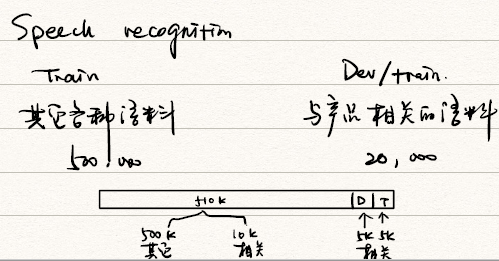 Speech recognition
Train
Dev/train.
其它各种语料
与产品相关的语料
500,000
20,000
510K
D
T
500K
10K
5K 5K
其它
相关
相关